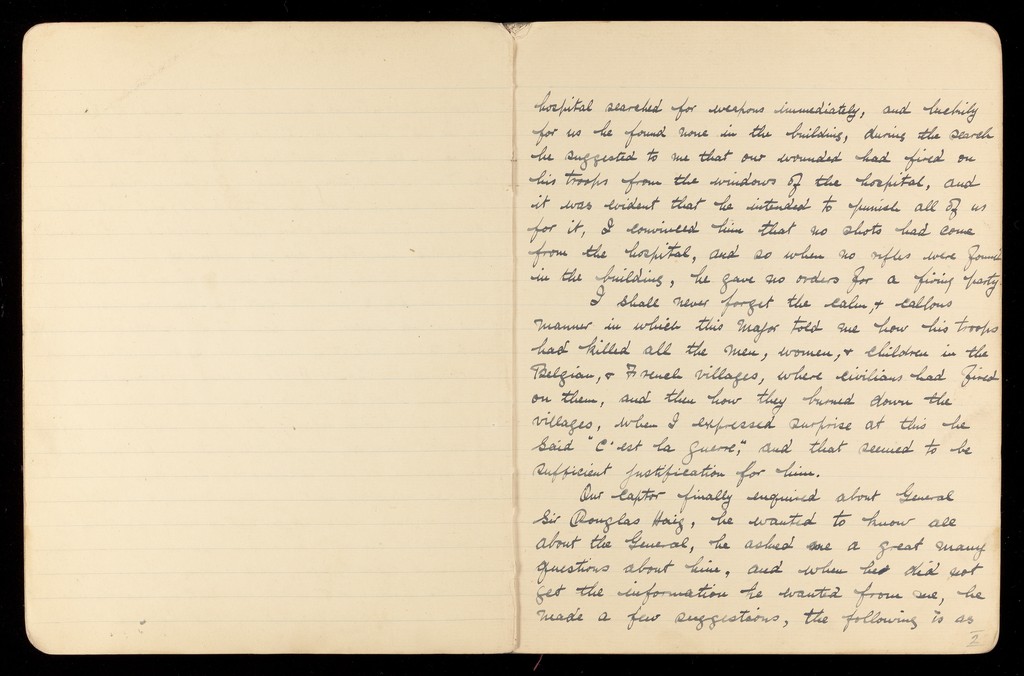 hospital searched for weapons immediately, and luckily
for us he found none in the building, during the search
he suggested to me that our wounded had fired on
his troops from the windows of the hospital, and
it was evident that he intended to punish all of us
for it, I convinced him that no shots had come
from the hospital, and so when no rifles were found
in the building, he gave no orders for a firing party.
I shall never forget the calm, & callous
manner in which this Major told me how his troops
had killed all the men, women, & children in the
Belgian, & French villages, where civilians had fired
on them, and then how they burned down the
villages, when I expressed surprise at this he
said "C'est la guerre", and that seemed to be
sufficient justification for him.
Our captor finally enquired about General
Sir Douglas Haig, he wanted to know all
about the General, he asked me a great many
questions about him, and when he did not
get the information he wanted from me, he
made a few suggestions, the following is as
2